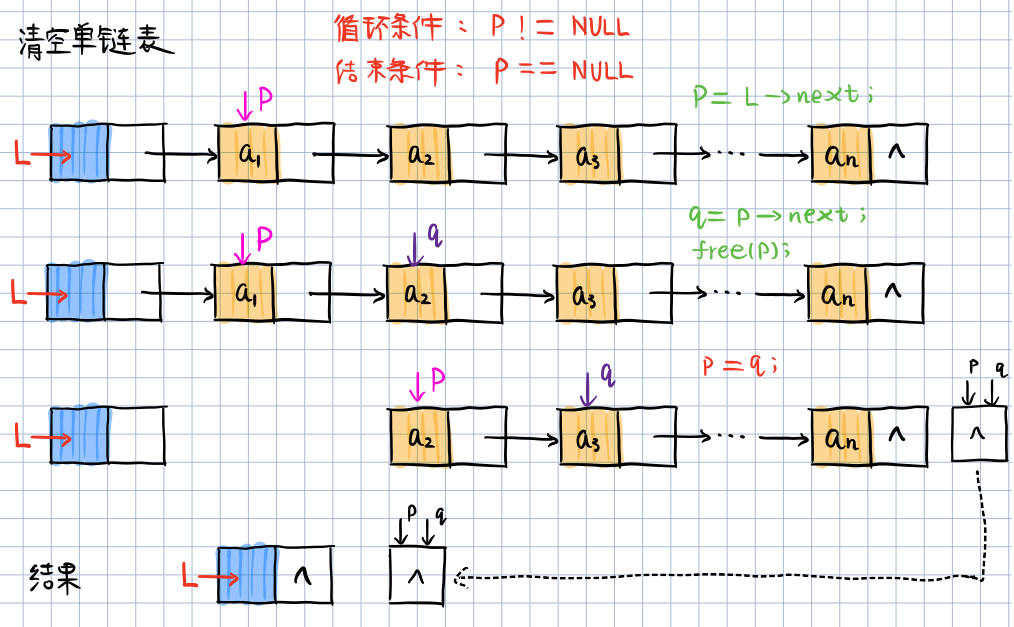 清空单链表
循环条件: P != NULL
结束条件: P == NULL
P = L → next;
P
L a1 a2 a3 ... an ^
q = P → next;
free(P);
P q
L a1 a2 a3 ... an ^
P = q;
P q P q
L a2 a3 ... an ^ ^
P q
结果 L ^ ^